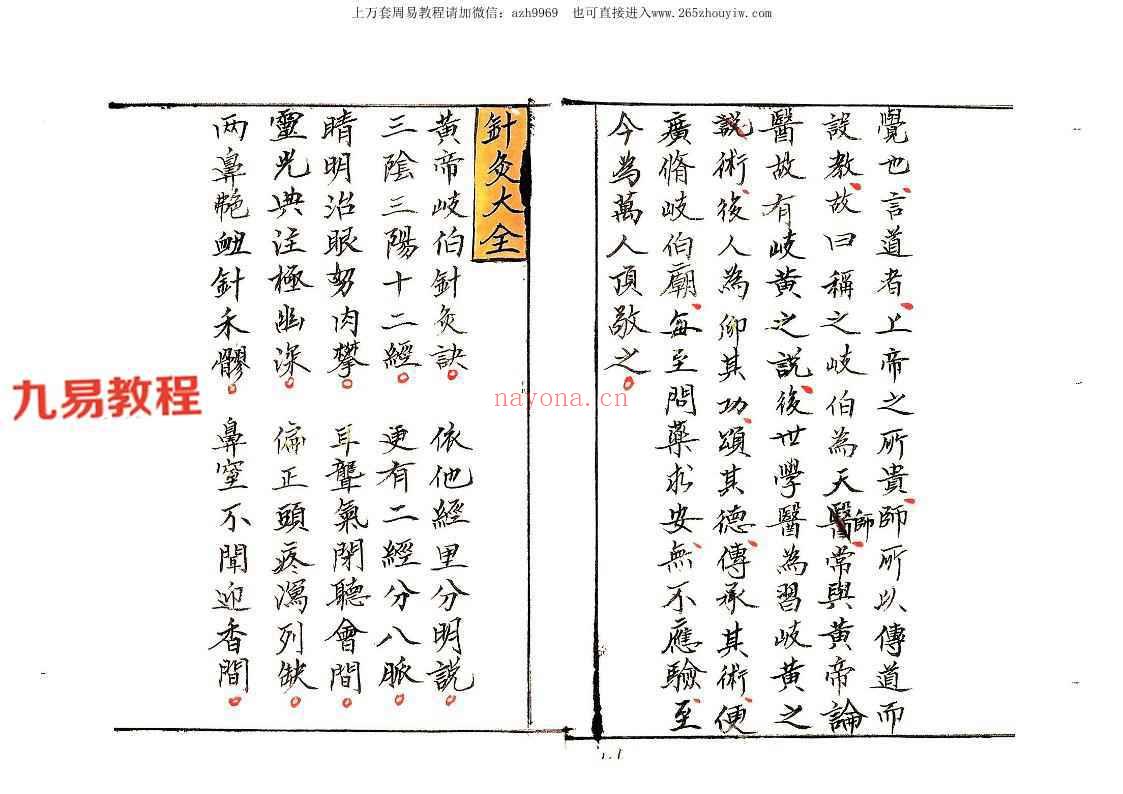 上万套周易教程请加微信：azh9969 也可直接进入www.265zhouyiw.com
覺也、言道者、上帝之所貴、師所以傳道而
設教、故曰稱之岐伯為天醫師、常與黃帝論
醫故有岐黃之説、後世學醫為習岐黃之
説術、後人為仰其功、頌其德、傳承其術、便
廣脩岐伯廟、每至問藥求安、無不應驗、至
今為萬人頂敬之。
針灸大全
黃帝岐伯針灸訣。 依他經里分明説。
三陰三陽十二經。 更有二經分八脈。
睛明治眼努肉攀。 耳聾氣閉聽會間。
靈光典注極幽深。 偏正頭疼瀉列缺。
两鼻䶊衂針禾髎。 鼻窒不聞迎香間。
九易教程
nayona.cn